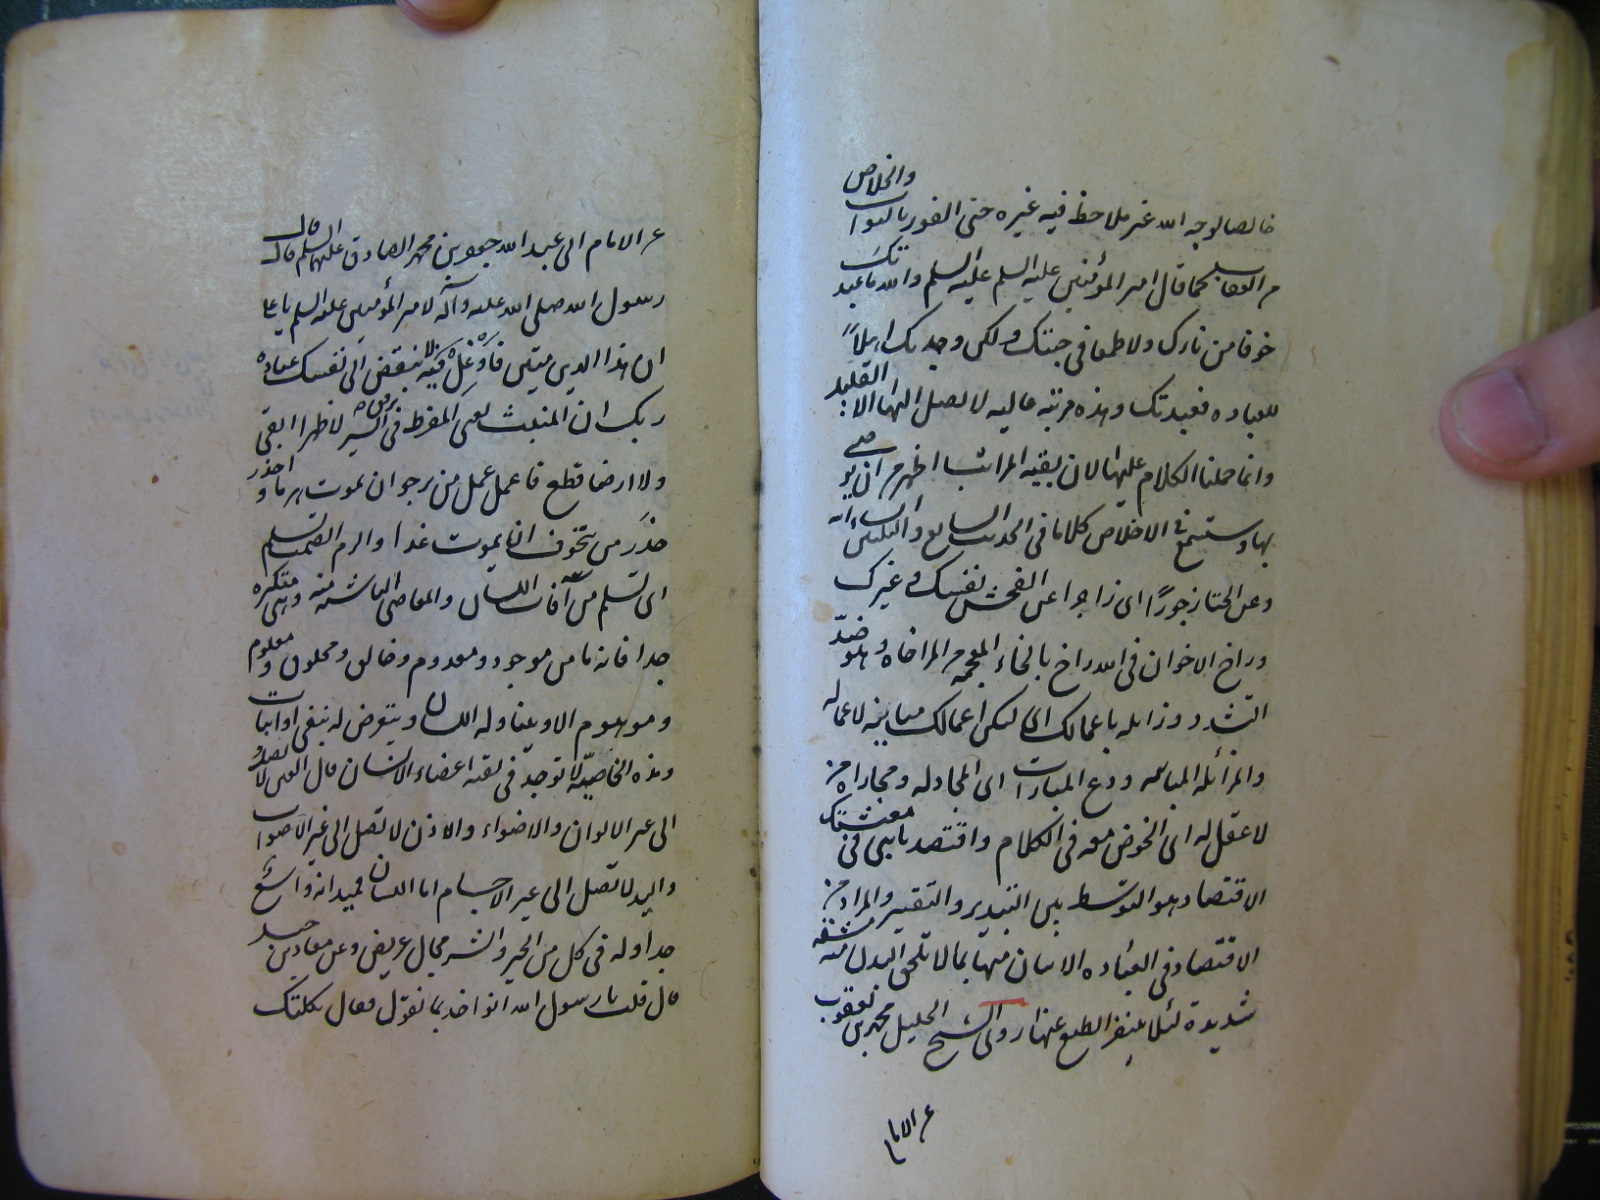 خالصا لوجه الله غير ملاحظ فيه غيره حتى الفوز بالثواب والخلاص
من العقاب كما قال امير المؤمنين عليه السلم عليه السلم والله ما عبدتك
خوفا من نارك ولا طمعا في جنتك ولكن وجدتك اهلاً
للعباده فعبدتك وهذه مرتبه عاليه لا يصل اليها الا القليل
وانما حملنا الكلام عليها لان بقيه المراتب اظهر من ان يوصى
بها وستسمع في الاخلاص كلاما في الحديث السابع والثلثين
وعن الخنا زجورًا اى زاجرا عن الفحش نفسك وغيرك
وراخ الاخوان في الله راخ بالخاء المعجمه من المراخاه وهو ضدّ
التشدد وزايله باعمالك اى لتكن اعمالك مباينه لاعماله
والمزائله المباينه ودع المبارات اى المجادله ومجاراه من
لا عقل له اى الخوض معه في الكلام واقتصد يا بنى في معيشتك
الاقتصاد هو التوسّط بين التبذير والتقتير والمراد من
الاقتصاد في العباده الاتيان منها بما لا تلحق البدن منه مشقه
شديدة لئلا ينفر الطبع عنها روى الشيخ الجليل محمد بن يعقوب
عن الاما
عن الامام ابى عبد الله جعفر بن محمد الصادق عليهما السلم قال قال
رسول الله صلى الله عليه وآله لامير المؤمنين عليه السلم يا على
ان هذا الدين متين فاوغل فيه برفق ولا تبغض الى نفسك عباده
ربك ان المنبت يعنى المفرط في السير لا ظهرا ابقى
ولا ارضا قطع فاعمل عمل من يرجو ان يموت هرما واحذر
حذر من يتخوف ان يموت غدا والزم الصمت تسلم
اى تسلم من آفات اللسان والمعاصى الناشئه منه وهى متكثره
جدا فانه ما من موجود ومعدوم وخالق ومخلوق ومعلوم
وموهوم الا ويتناوله اللسان ويتعرض له بنفى او اثبات
وهذه الخاصيّة لا توجد في بقيه اعضاء الانسان فان العين لا تصل
الى غير الالوان والاضواء والاذن لا تصل الى غير الاصوات
واليد لا تصل الى غير الاجسام اما اللسان فميدانه واسع
جدا وله في كل من الخير والشر مجال عريض وعن معاذ بن جبل
قال قلت يا رسول الله انؤاخذ بما نقول فقال ثكلتك